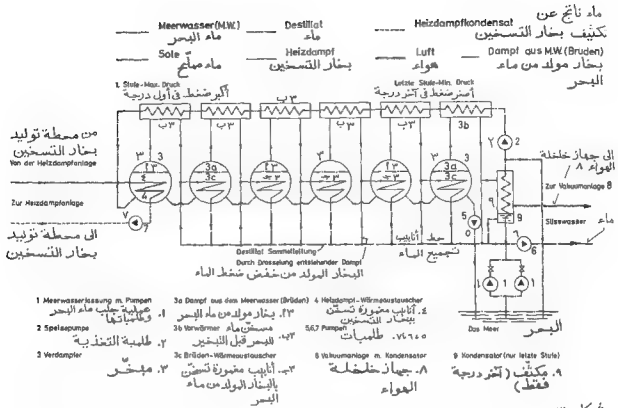 Meerwasser (M.W.)
ماء البحر
Destillat
ماء
Heizdampfkondensat
ماء ناتج عن
تكثيف بخار التسخين
Sole
ماء مملح
Heizdampf
بخار التسخين
Luft
هواء
Dampf aus M.W. (Bruden)
بخار مولد من ماء
البحر
1. Stufe-Max. Druck
أكبر ضغط في أول درجة
Letzte Stufe-Min. Druck
أصغر ضغط في آخر درجة
٣ب ٣ب ٣ب ٣ب ٣ب 3b
من محطة توليد
بخار التسخين
Von der Heizdampfanlage
Zur Heizdampfanlage
الى محطة توليد
بخار التسخين
٣ 3
4
3a
3c
3
3a
3c
٢ 2
الى جهاز خلخلة
الهواء ٨
Zur Vakuumanlage 8
9
5
6
7
Süsswasser
ماء
خط أنابيب
تجميع الماء
Destillat Sammelleitung
Durch Drosselung entstehender Dampf
البخار المولد من خفض ضغط الماء
1 1
Das Meer
البحر
1 Meerwasserfassung m. Pumpen
١. عملية جلب ماء البحر
وطلمباتها
2 Speisepumpe
٢. طلمبة التغذية
3 Verdampfer
٣. مبخّر
3a Dampf aus dem Meerwasser (Brüden)
٣أ. بخار مولد من ماء البحر
3b Vorwärmer
٣ب. مسخن ماء
البحر قبل التبخير
3c Brüden-Wärmeaustauscher
٣جـ. أنابيب مغمورة تسخن
بالبخار المولد من ماء
البحر
4 Heizdampf-Wärmeaustauscher
٤. أنابيب مغمورة تسخن
ببخار التسخين
5,6,7 Pumpen
٧،٦،٥ طلمبات
8 Vakuumanlage m. Kondensator
٨. جهاز خلخلة
الهواء
9 Kondensator (nur letzte Stufe)
٩. مكثّف (آخر درجة
فقط)